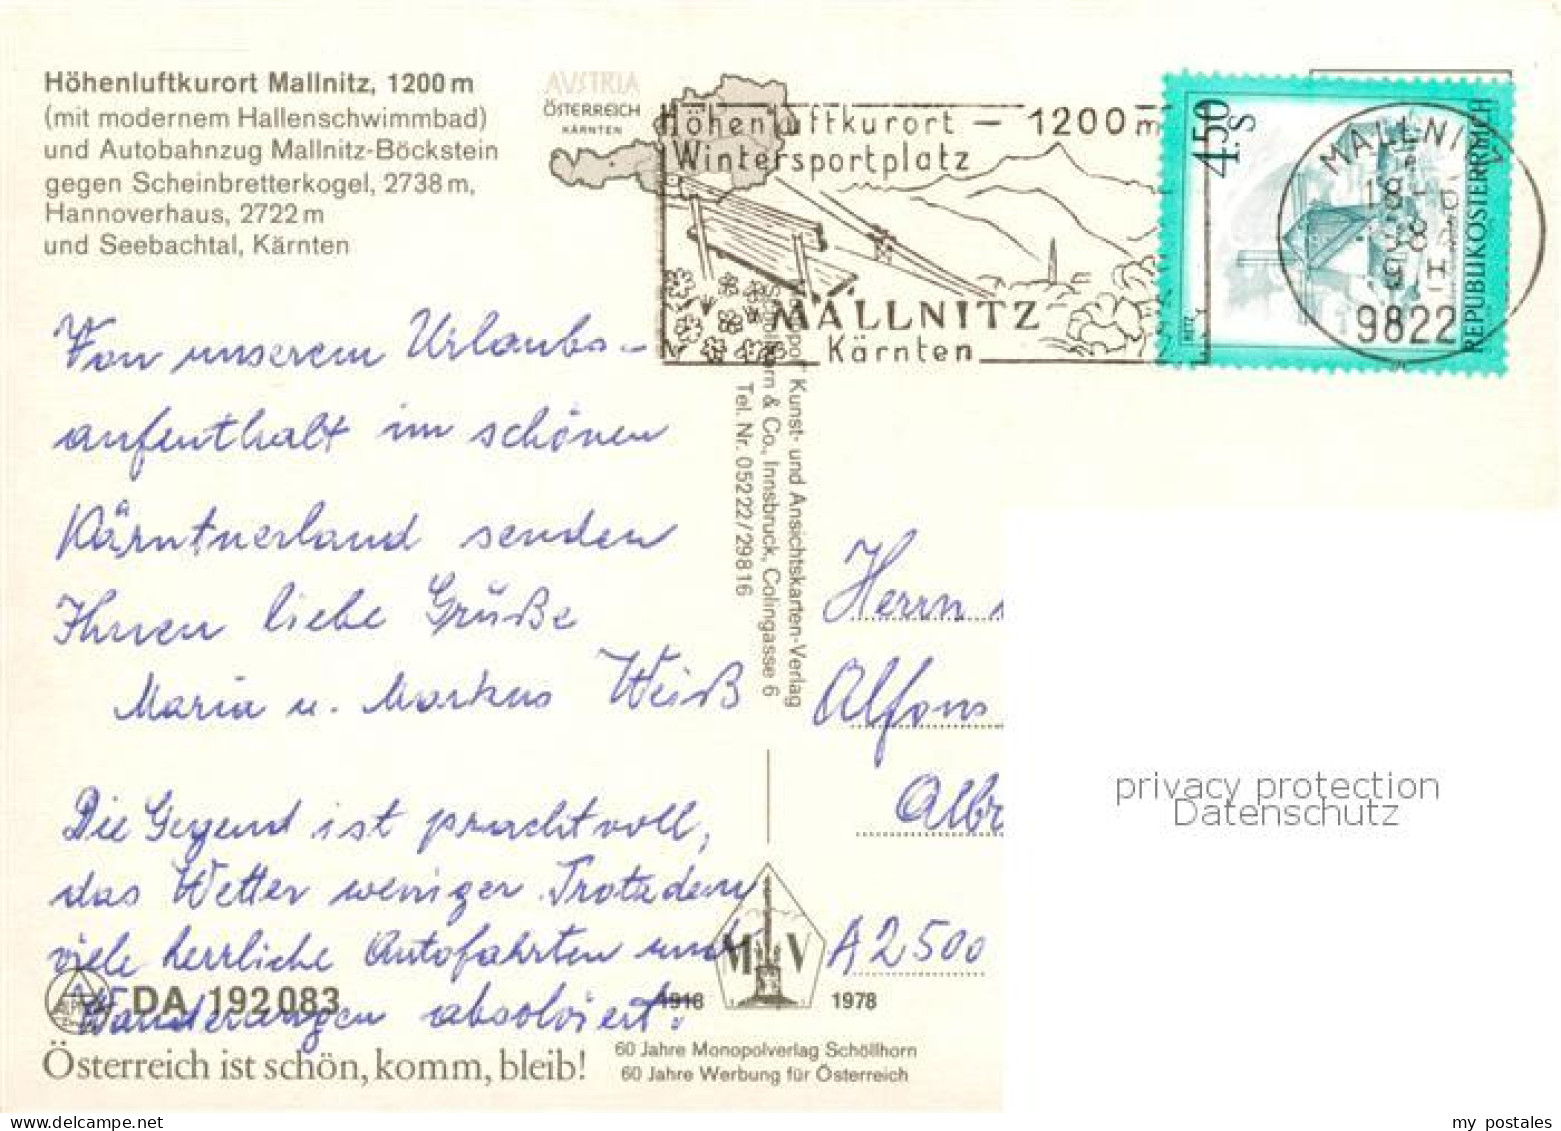 Höhenluftkurort Mallnitz, 1200 m
(mit modernem Hallenschwimmbad)
und Autobahnzug Mallnitz-Böckstein
gegen Scheinbretterkogel, 2738 m,
Hannoverhaus, 2722 m
und Seebachtal, Kärnten
AVSTRIA
ÖSTERREICH
KÄRNTEN
Höhenluftkurort – 1200 m
Wintersportplatz
MALLNITZ
Kärnten
4.50
S
REPUBLIK ÖSTERREICH
RETZ
MALLNITZ
18
9822
Von unserem Urlaubs-
aufenthalt im schönen
Kärntnerland senden
Ihnen liebe Grüße
Maria u. Markus Weiß
Die Gegend ist prachtvoll,
das Wetter weniger. Trotzdem
viele herrliche Autofahrten und
Wanderungen absolviert.
Kunst- und Ansichtskarten-Verlag
& Co., Innsbruck, Colingasse 6
Tel. Nr. 05222/29816
Herrn
Alfons
Albr
A 2500
privacy protection
Datenschutz
M V
1918 1978
DA 192083
Österreich ist schön, komm, bleib!
60 Jahre Monopolverlag Schöllhorn
60 Jahre Werbung für Österreich
my postales